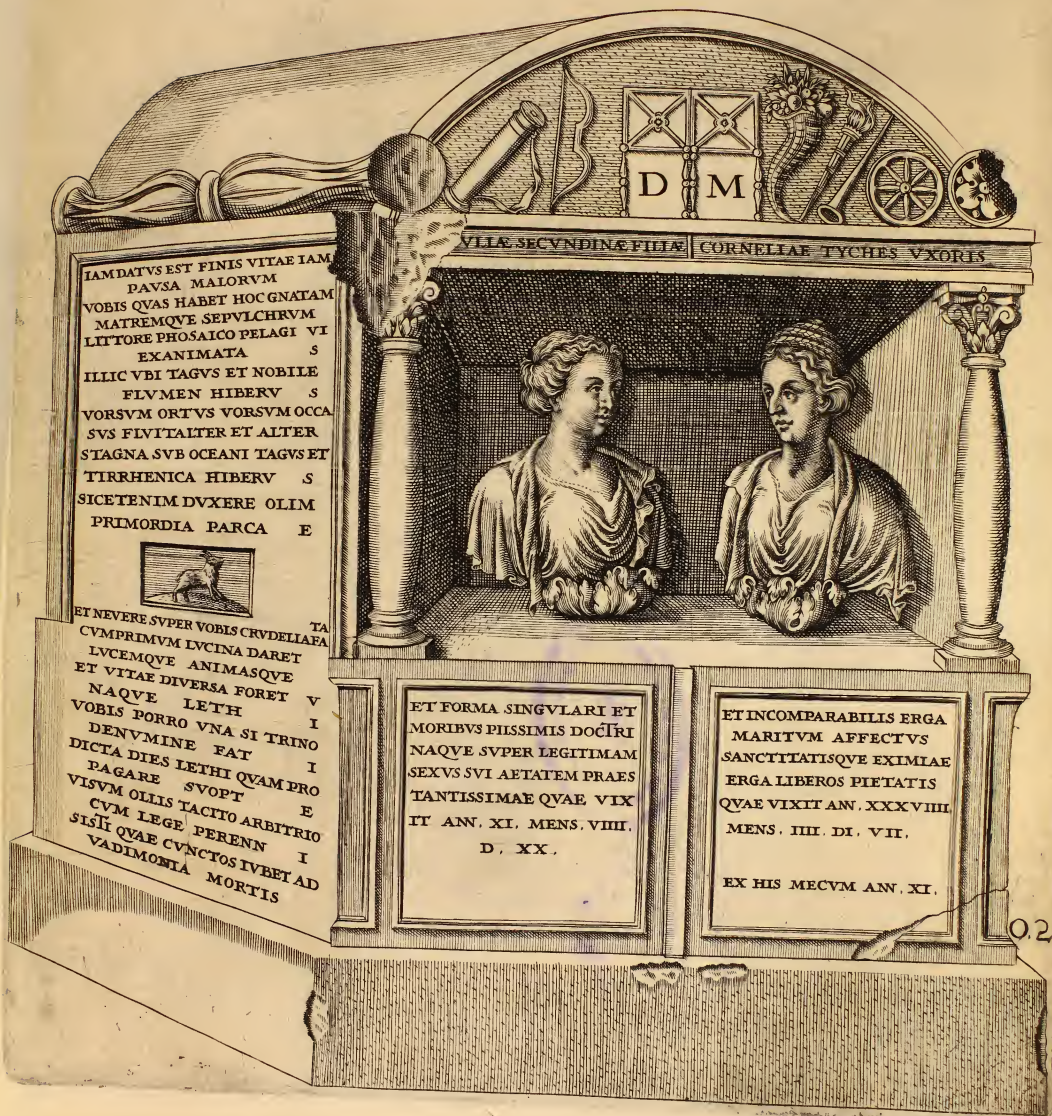 D M
VLIÆ SECVNDINÆ FILIÆ CORNELIAE TYCHES VXORIS
IAM DATVS EST FINIS VITAE IAM
PAVSA MALORVM
VOBIS QVAS HABET HOC GNATAM
MATREMQVE SEPVLCHRVM
LITTORE PHOSAICO PELAGI VI
EXANIMATA S
ILLIC VBI TAGVS ET NOBILE
FLVMEN HIBERV S
VORSVM ORTVS VORSVM OCCA
SVS FLVITALTER ET ALTER
STAGNA SVB OCEANI TAGVS ET
TIRRHENICA HIBERV S
SICETENIM DVXERE OLIM
PRIMORDIA PARCA E
TA
ET NEVERE SVPER VOBIS CRVDELIAFA
CVMPRIMVM LVCINA DARET
LVCEMQVE ANIMASQVE
ET VITAE DIVERSA FORET V
NAQVE LETH I
VOBIS PORRO VNA SI TRINO
DENVMINE FAT I
DICTA DIES LETHI QVAM PRO
PAGARE SVOPT E
VISVM OLLIS TACITO ARBITRIO
CVM LEGE PERENN I
SISTI QVAE CVNCTOS IVBET AD
VADIMONIA MORTIS
ET FORMA SINGVLARI ET
MORIBVS PIISSIMIS DOCTRI
NAQVE SVPER LEGITIMAM
SEXVS SVI AETATEM PRAES
TANTISSIMAE QVAE VIX
IT ANN. XI. MENS. VIIII.
D. XX.
ET INCOMPARABILIS ERGA
MARITVM AFFECTVS
SANCTITATISQVE EXIMIAE
ERGA LIBEROS PIETATIS
QVAE VIXIT ANN. XXXVIIII.
MENS. IIII. DI. VII.
EX HIS MECVM ANN. XI.
O.2